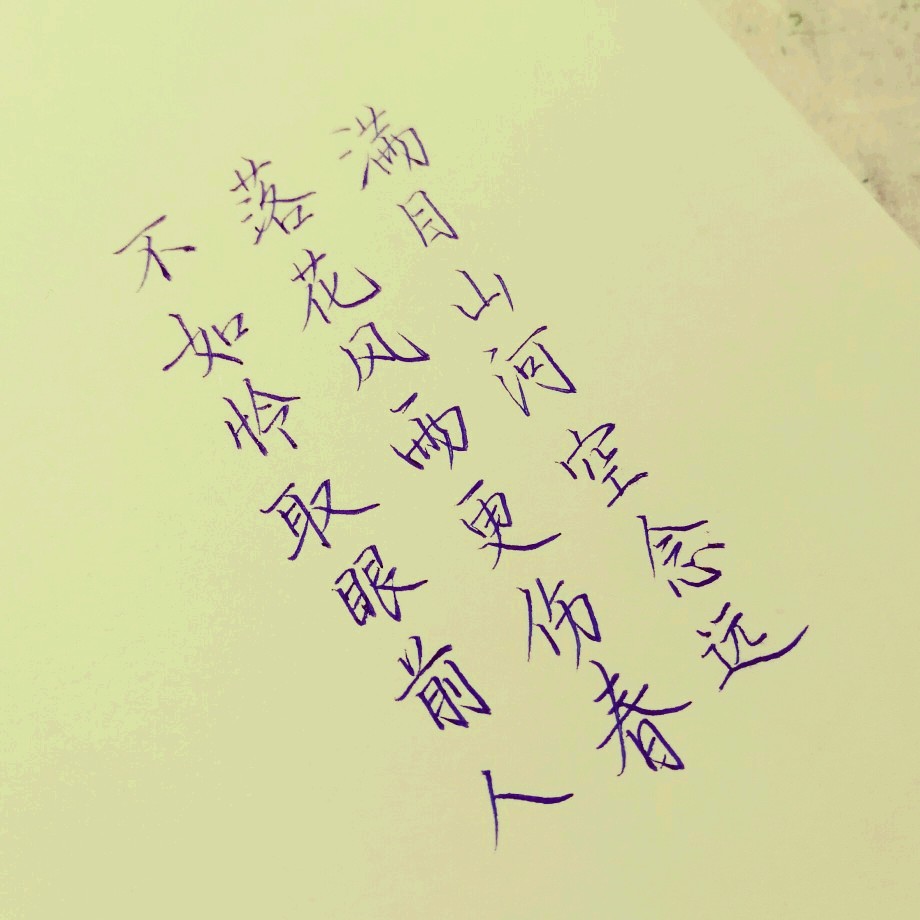 满目山河空念远
落花风雨更伤春
不如怜取眼前人